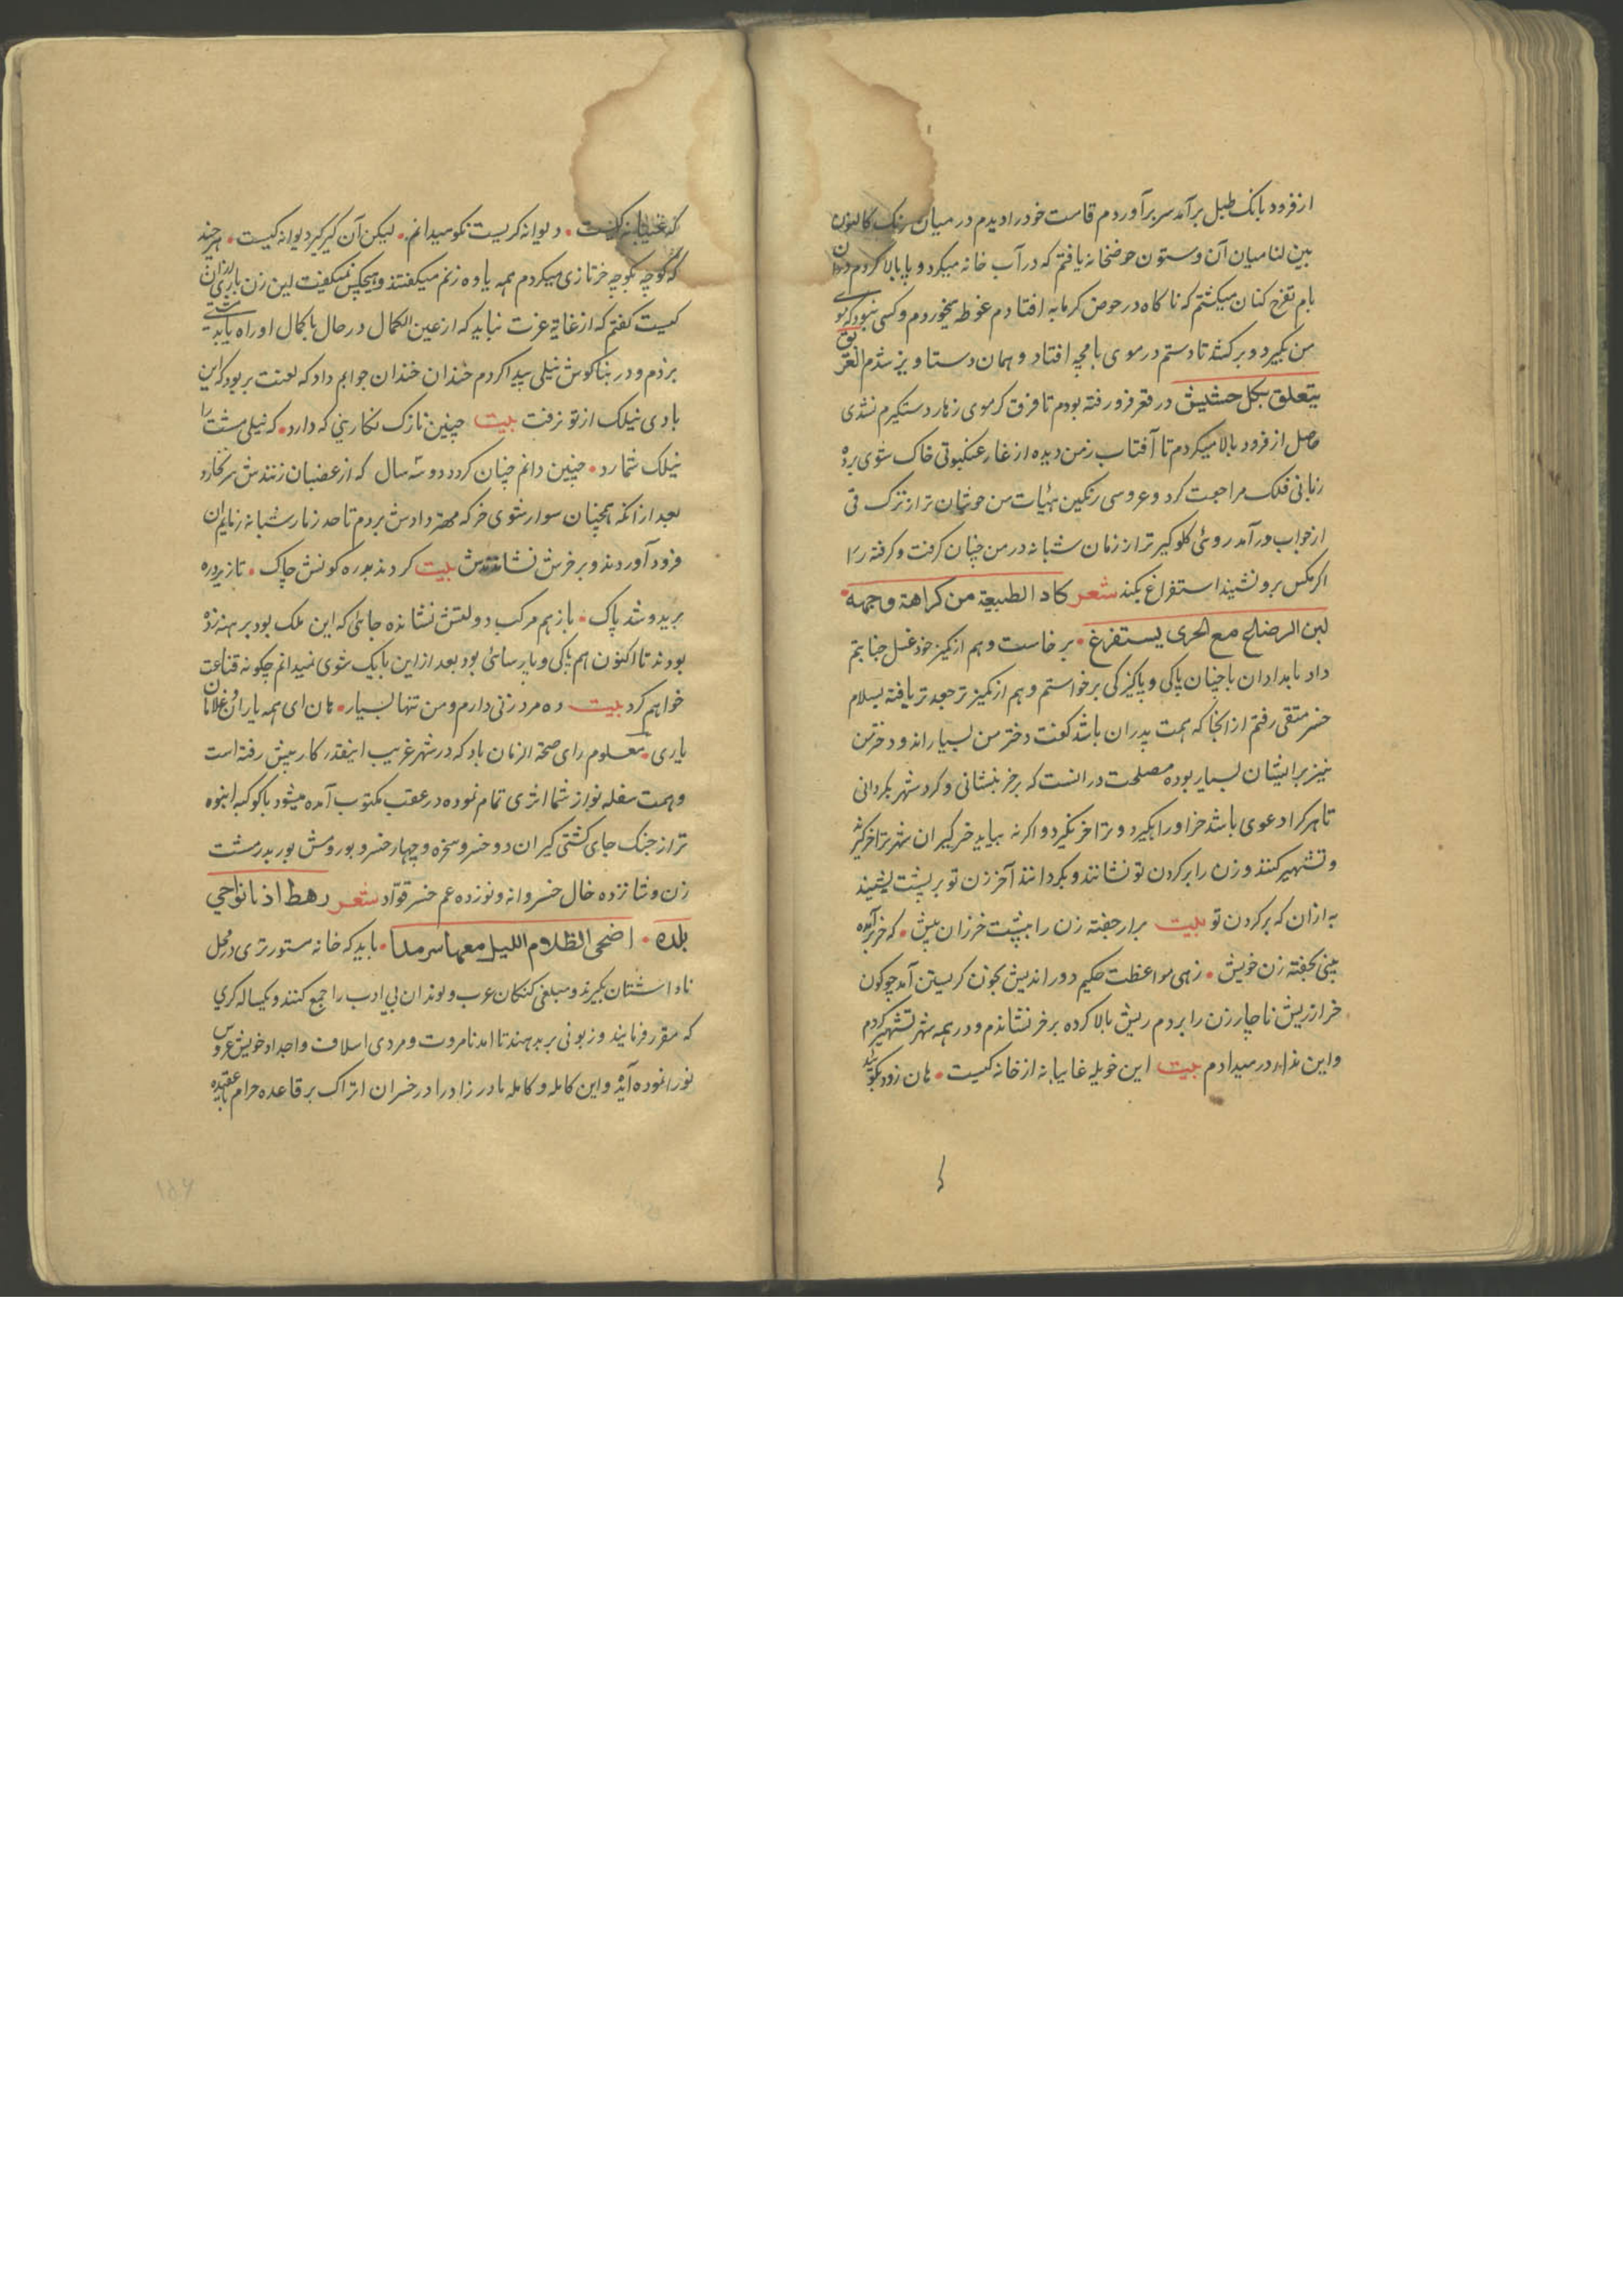 از فرود بانک طبل برآمد سر برآوردم قاست خود را دیدم در میان رنک کالبون
بین لنا میان آن و ستون حوضخانه یافتم که در آب خانه میکرد و پا بالا کردم
بام تفرج کنان میکشتم که ناکاه در حوض کرمابه افتادم غوطه میخوردم و کسی نبود که موی
من بکیرد و برکشد تا دستم در موی بامچه افتاد و همان دستاویز شدم الغریق
یتعلق بکل حشیش در قعر فرو رفته بودم تا فرق کر موی زهار دستکیرم نشدی
حاصل از فرود بالا میکردم تا آفتاب زمن دیده از غار عنکبوتی خاک سوی پرده
زبانی فلک مراجعت کرد و عروسی رنکین هیأت من خوشان تر از ترک قی
از خواب درآمد روئی کلوکیر تر از زمان شبانه در من چنان کرفت و کرفته را
اکر مکس برو نشیند استفراغ بکند شعر کاد الطبیعة من کراهة وجهه
لبن الرضاع مع الحری یستفرغ • برخاست و هم از کمیز خود غسل جنابتم
داد بامدادان با چنان پاکی و پاکیزکی برخواستم و هم از کمیز تر جعد تر بافته بسلام
خسر متقی رفتم از انجا که همت پدران باشد کفت دختر من بسیار اند و دختر من
نیز بر ایشان بسیار بوده مصلحت در انست که بر خر بنشانی و کرد شهر بکردانی
تا هر کرا دعوی باشد خرا و را بکیرد و ترا خر نکیرد و اکر نه بیاید خرکیران شهر ترا خر کیرند
و تشهیر کنند و زن را بر کردن تو نشانند و بکردانند آخر زن تو بر پشت نشیند
به ازان که بر کردن تو بیت برار جفته زن را بپشت خر زان پیش • که خر برآمده
بینی بجفته زن خویش • زهی مواعظت حکیم دوراندیش بجون کریستن آمد چو کون
خر از ریش ناچار زن را بردم ریش بالا کرده بر خر نشاندم و در همه شهر تشهیر کردم
و این ندا در میدادم بیت این خویله غایبانه از خانه کیست • هان زود بکوئید
که غایبانه کیست • دیوانه کریست نکو میدانم • لیکن آن کیر کیر دیوانه کیست • هر چند
که کوچه بکوچه خر تازی میکردم همه یاوه زنم میکفتند و هیچکس نمیکفت این زن باری ازان
کیست کفتم که از غایة عزت نباید که از عین الکمال در حال با کمال او راه یابد
بردم و در بناکوش نیلی پیدا کردم خندان خندان جوابم داد که لعنت بر بود که این
بادی نیلک از تو نرفت بیت چنین نازک نکارینی که دارد • که نیلی مشت را
نیلک شمارد • چنین دانم چنان کردد دو سه سال که از عضبان زنندش سر نخارد
بعد از انکه همچنان سوار شوی خر که مهتر دادش بردم تا حد زنار شبانه زنایم ان
فرود آوردند و بر فرش نشاندندش بیت کردند بدره کونش چاک • تاز پرده
برید و شد پاک • باز هم مرکب دولتش نشانده جائی که این ملک بود برهنه زده
بودند تا اکنون هم پاکی و پارسائی بود بعد از این با یک شوی نمیدانم چکونه قناعت
خواهم کرد بیت ده مرد زنی دارم و من تنها بسیار • هان ای همه یاران و غلامان
یاری • معلوم رای صحة الزمان باد که در شهر غریب اینقدر کار پیش رفته است
و همت سفله نواز شما اثری تمام نموده در عقب مکتوب آمده میشود با کوکبه انبوه
تر از جنک جای کشتی کیران دو خسر و سخره و چهار خسر و بور و مش پور بدر مشت
زن و شانزده خال خسروانه و نوزده عم خسر قواد شعر رهط اذ نانواحی
بلده • اضحی الظلام اللیل معها سرمدا • باید که خانه ستورتری در محل
ناداشتان بکیرند و مبلغی کنکان عرب و لوندان بی ادب را جمع کنند و یکساله کری
که مقرر فرمایند و زبونی بر بدهند تا امد نامروت و مردی اسلاف و اجداد خویش عروس
نورا نموده آید و این کامله و کامله مادرزاد را در خسران اتراک بر قاعده حرام عقیده